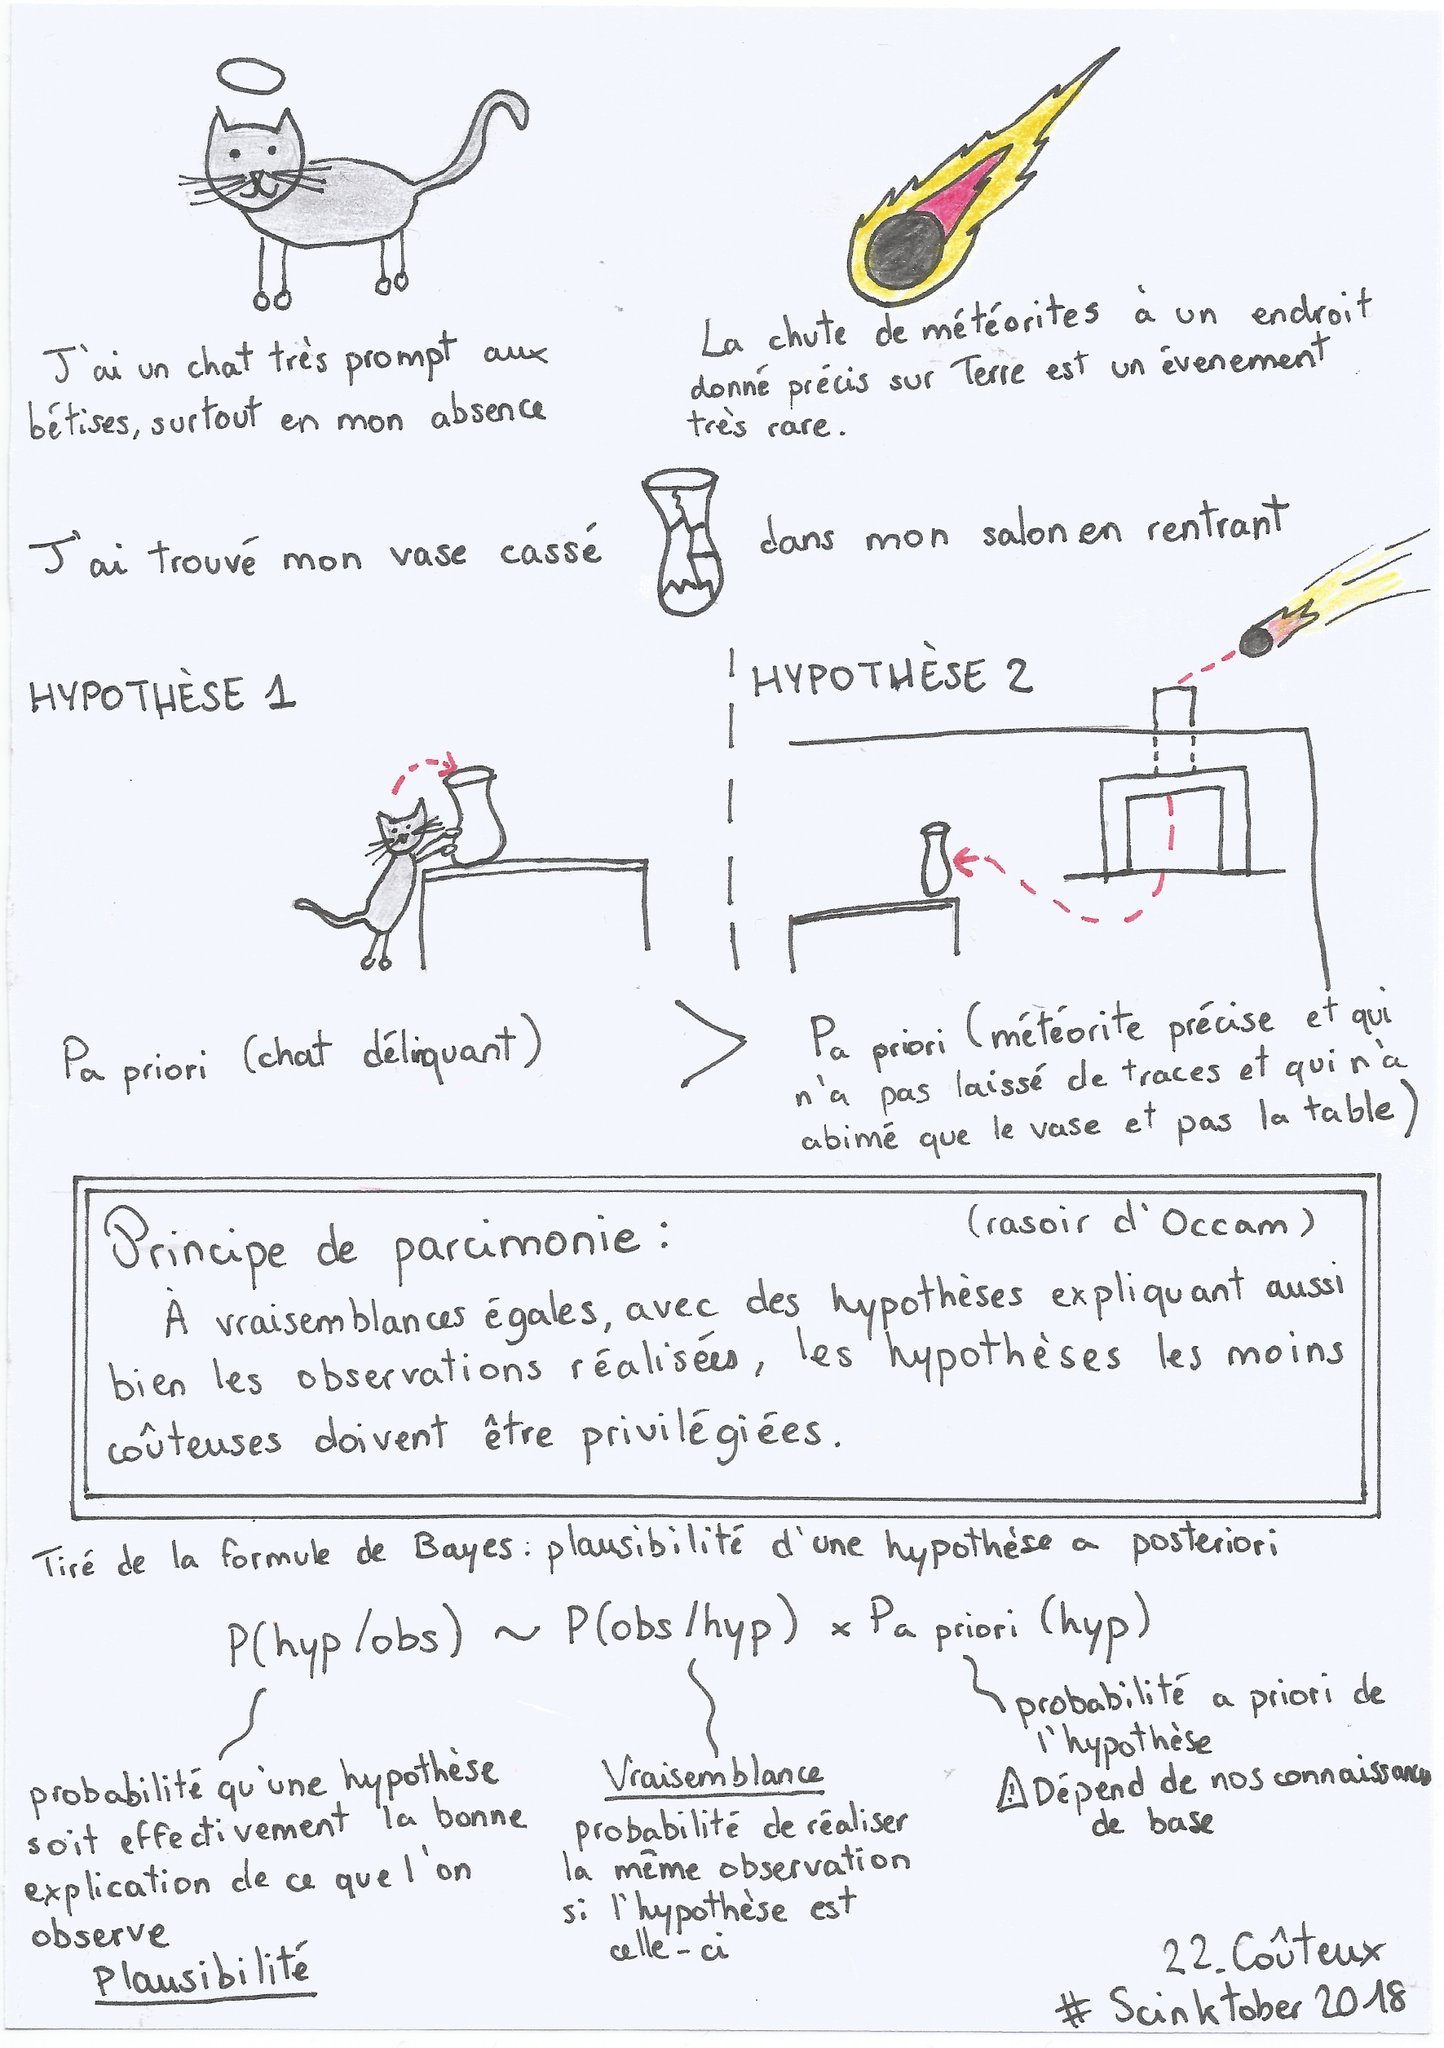 J'ai un chat très prompt aux
bétises, surtout en mon absence
La chute de météorites à un endroit
donné précis sur Terre est un évenement
très rare.
J'ai trouvé mon vase cassé dans mon salon en rentrant
HYPOTHÈSE 1
HYPOTHÈSE 2
Pa priori (chat délinquant)
>
Pa priori (météorite précise et qui
n'a pas laissé de traces et qui n'a
abimé que le vase et pas la table)
Principe de parcimonie : (rasoir d'Occam)
À vraisemblances égales, avec des hypothèses expliquant aussi
bien les observations réalisées, les hypothèses les moins
coûteuses doivent être privilégiées.
Tiré de la formule de Bayes : plausibilité d'une hypothèse a posteriori
P(hyp/obs) ~ P(obs/hyp) × Pa priori (hyp)
probabilité qu'une hypothèse
soit effectivement la bonne
explication de ce que l'on
observe
Plausibilité
Vraisemblance
probabilité de réaliser
la même observation
si l'hypothèse est
celle-ci
probabilité a priori de
l'hypothèse
⚠ Dépend de nos connaissances
de base
22. Coûteux
# Scinktober 2018